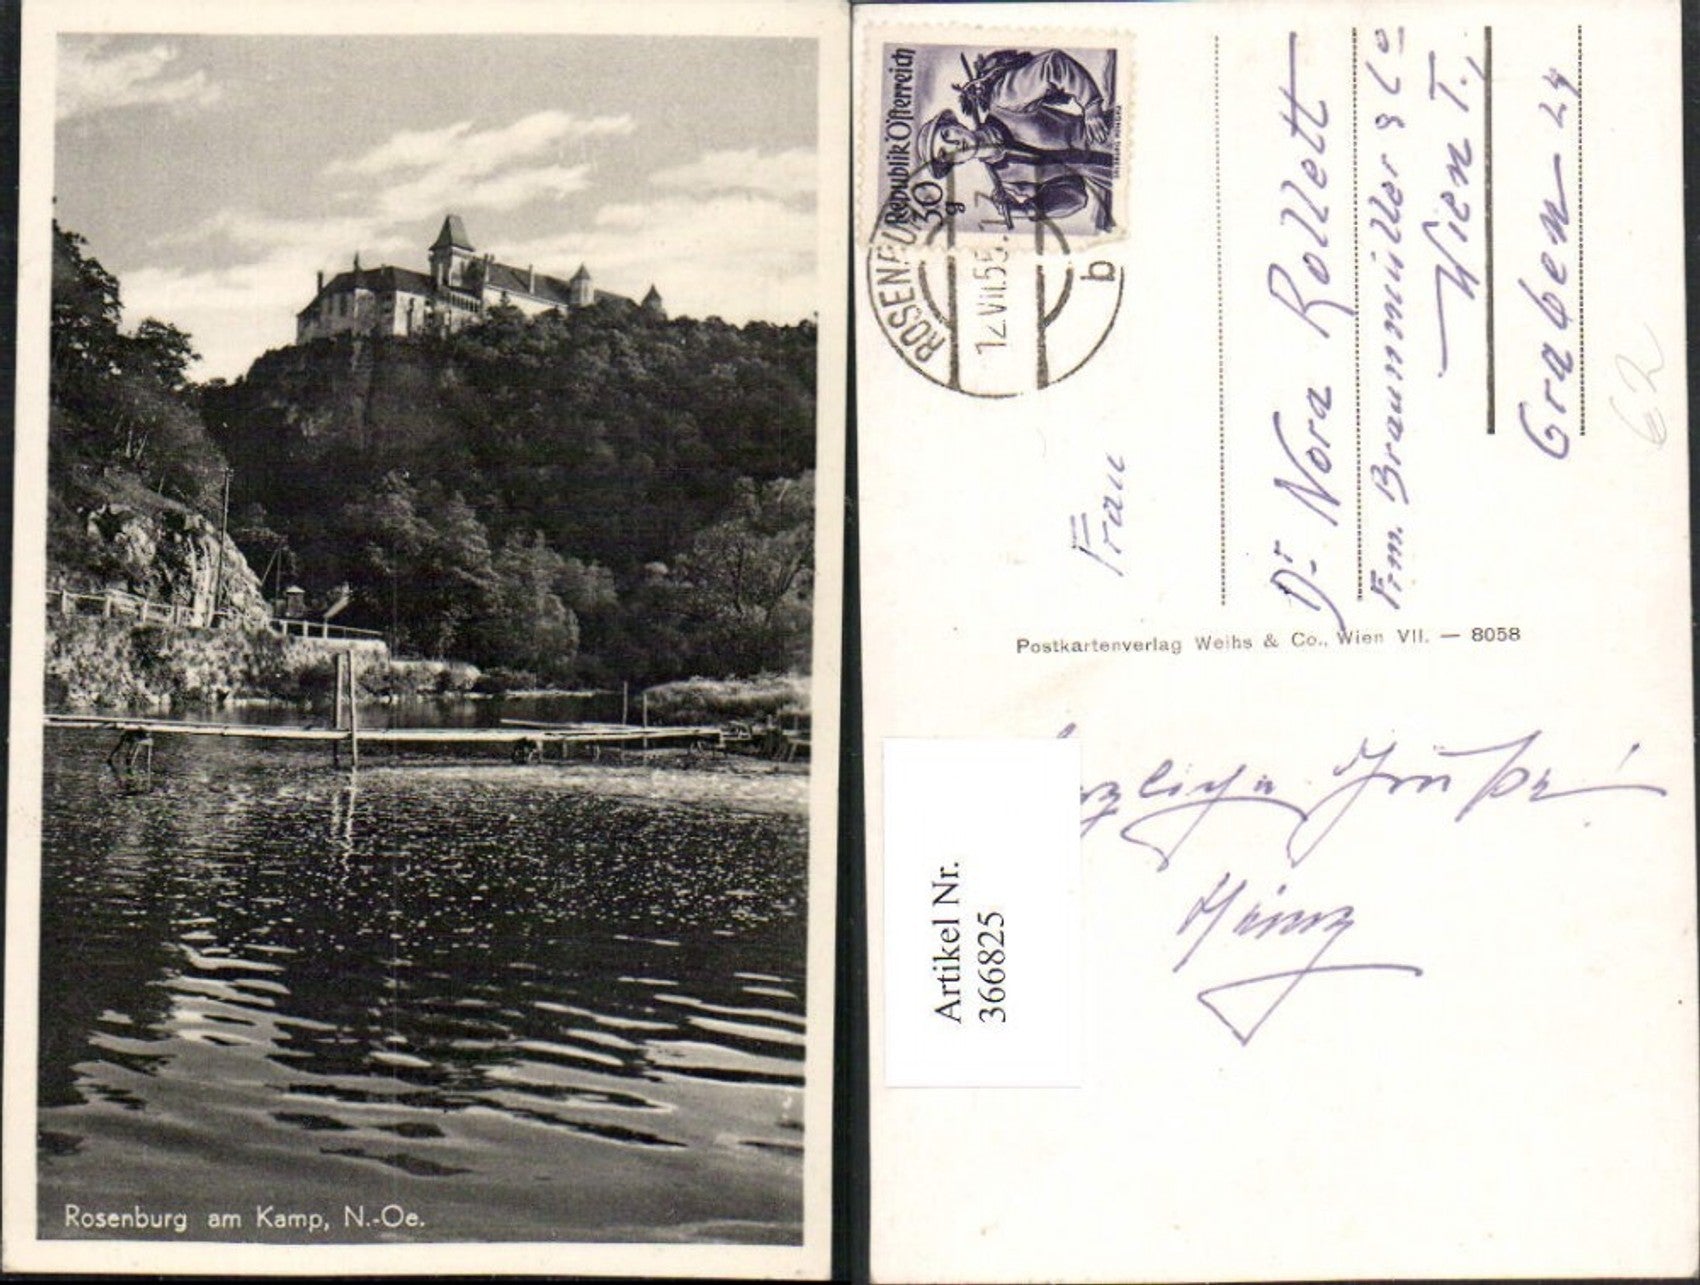 Rosenburg am Kamp, N.-Oe.
Republik Österreich
30
ROSENBURG
12.VII.55.
g
b
Frau
Dr. Nora Rollett
Fm. Braunmüller & Co
Wien I.,
Graben 24
62
Postkartenverlag Weihs & Co., Wien VII. — 8058
Grüße!
Heinz
Artikel Nr.
366825